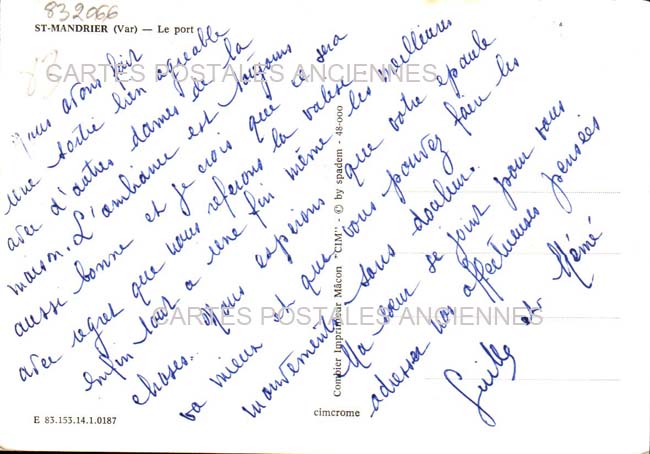 832066
83
ST-MANDRIER (Var) — Le port
CARTES POSTALES ANCIENNES
Nous avons fait
une sortie bien agréable
avec d'autres dames de la
maison. L'ambiance est toujours
aussi bonne et je crois que ce sera
avec regret que nous referons la valise
enfin tout a une fin même les meilleures
choses. Nous espérons que votre épaule
va mieux et que vous pouvez faire les
mouvements sans douleur.
Ma sœur se joint pour vous
adresser nos affectueuses pensées
et Mémé
CARTES POSTALES ANCIENNES
Combier Imprimeur Mâcon "CIM" - © by spadem - 48-000
E 83.153.14.1.0187
cimcrome